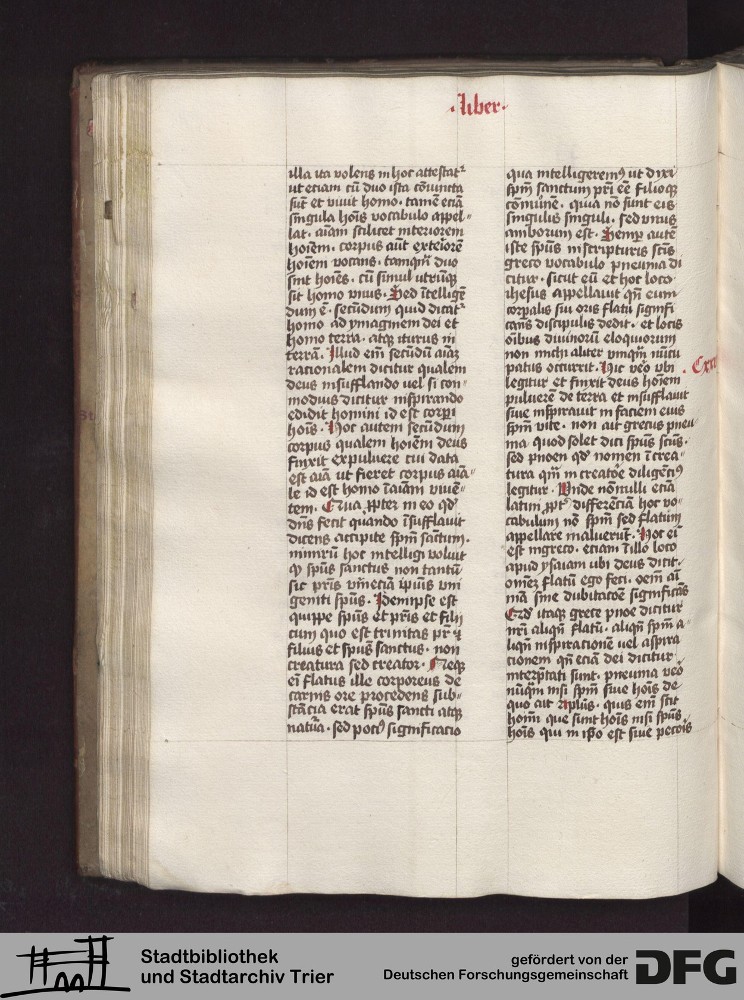 ·liber·
illa ita volens in hoc attestat᷑
ut eciam cū duo ista cōiuncta
sūt et vivit homo · tamē eciā
singula hoīs vocabulo appel-
lat · aīam scilicet interiorem
hoīem · corpus aūt exteiorē
hoīem vocans · tamqm̄ duo
sint hoīes · cū simul utrūq;
sit homo vnus · Sed ītelligē
dum ē · secūdum quid dicat᷑
homo ad ymaginem dei et
homo terra · atq; iturus in
terrā · Illud em̄ secūdū aīaꝫ
racionalem dicitur qualem
deus insufflando uel si con-
modius dicitur inspirando
edidit homini id est corpi
hoīs · Hoc autem secūdum
corpus qualem hoīem deus
finxit expuluere cui data
est aīa ut fieret corpus aīa-
le id est homo īaīam viuē-
tem · Qua ꝓpter in eo qd̓
dn̄s fecit quando īsufflauit
dicens accipite spm̄ sactum ·
nimirū hoc intelligi voluit
ꝙ spūs sanctus non tantū
sit pr̄is verūeciā ip̄ius vni
geniti spūs · Idemipse est
quippe spūs et pr̄is et filij
cum quo est trinitas pr̄ ⁊
filius et spūs sanctus · non
creatura sed creator · Neq;
em̄ flatus ille corporeus de
carnis ore procedens sub-
stācia erat spūs sancti atq;
natūa · sed poci᷒ significatio
qua intelligerem᷒ ut dixi
spm̄ sanctum pr̄i eē filioq;
comūnē · quia nō sunt eis
singulis singuli · sed vnus
amborum est · Semp autē
iste spūs in scripturis scīs
greco vocabulo pneuma di
citur · sicut eū et hoc loco
ihesus appellauit qn̄ eum
corpalis sui oris flatū signifi
cans discipulis dedit · et locis
oībus diuinorū eloquiorum
non michi aliter vmqm̄ nūcu
patus occurrit · Hic veo vbi
legitur et finxit deus hoīem
puluerē de terra et insufflauit
siue inspirauit in faciem eius
spm̄ vite · non ait grecus pneu
ma quod solet dici spūs scūs ·
sed pnoen qd̓ nomen ī crea-
tura qm̄ in creatoe diligēci᷒
legitur · Vnde nōnulli eciā
latini ꝓpt̓ differēciā hoc vo-
cabulum nō spm̄ sed flatum
appellare maluerūt · Hoc em̄
est ingreco · eciam ī illo loco
apud ysaiam ubi deus dicit ·
omēꝫ flatū ego feci · oem̄ aī
mā sine dubitacōe significās
Qd̓ itaq; grece pnoe dicitur
nr̄i aliqn̄ flatū · aliqn̄ spm̄ a-
liqn̄ inspiracionē uel aspira
cionem qn̄ eciā dei dicitur
interp̄tati sunt · pneuma veo
nūqm̄ nisi spm̄ siue hoīs de
quo ait apl̄us · quis em̄ scit
hoīm que sunt hoīs nisi spūs
hoīs qui in ip̄o est siue pecois
Stadtbibliothek
und Stadtarchiv Trier
gefördert von der
Deutschen Forschungsgemeinschaft
DFG